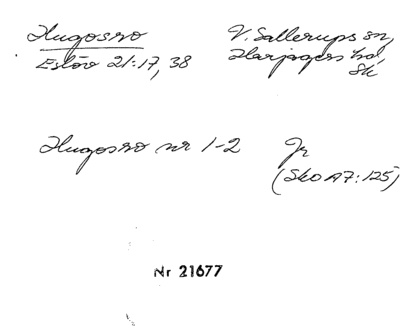 Hugosro V. Sallerups sn,
Eslöv 21:17, 38 Harjagers hd,
Sk
Hugosro nr 1-2 Jr
(Sko A7:125)
Nr 21677